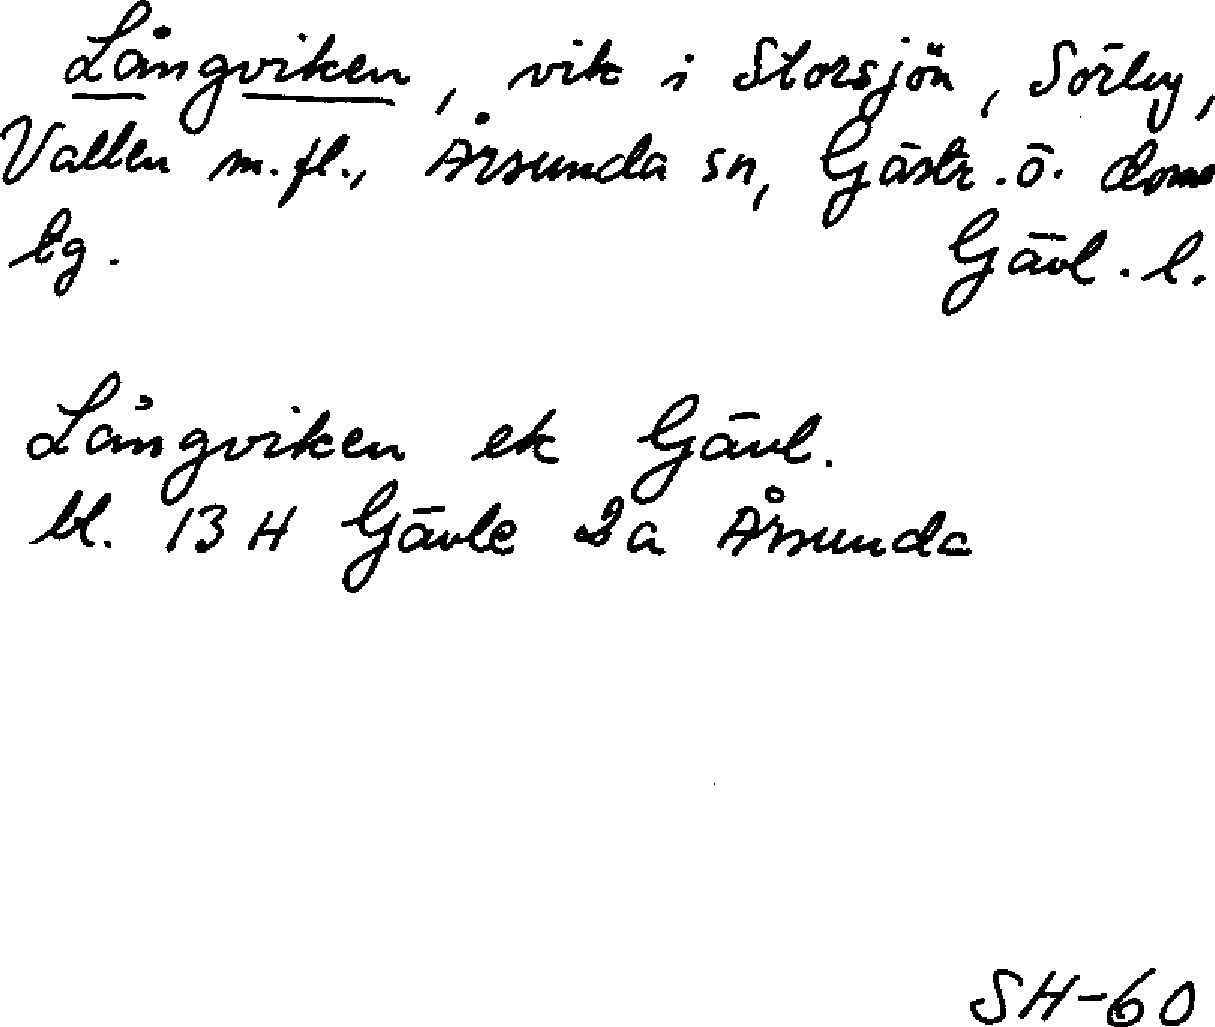 Långviken, vik i Storsjön, Sörby,
Vallen m.fl., Årsunda sn, Gästr. ö. doms
tg. Gävl. l.
Långviken ek Gävl.
bl. 13 H Gävle 2a Årsunda
SH-60